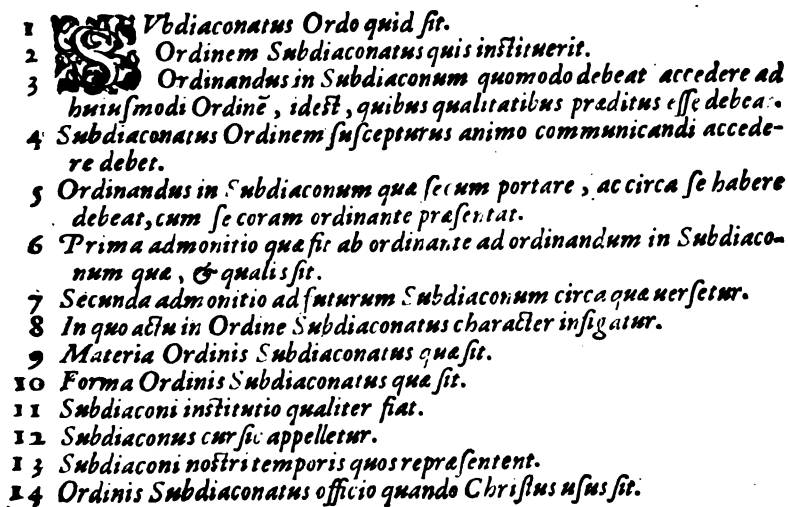 1 SVbdiaconatus Ordo quid ſit.
2 Ordinem Subdiaconatus quis inſtituerit.
3 Ordinandus in Subdiaconum quomodo debeat accedere ad
huiuſmodi Ordinẽ, ideſt, quibus qualitatibus præditus eſſe debeat.
4 Subdiaconatus Ordinem ſuſcepturus animo communicandi accede-
re debet.
5 Ordinandus in Subdiaconum quæ ſecum portare, ac circa ſe habere
debeat, cum ſe coram ordinante præſentat.
6 Prima admonitio quæ fit ab ordinante ad ordinandum in Subdiaco-
num quæ, & qualis ſit.
7 Secunda admonitio ad futurum Subdiaconum circa quæ uerſetur.
8 In quo actu in Ordine Subdiaconatus character inſigatur.
9 Materia Ordinis Subdiaconatus quæ ſit.
10 Forma Ordinis Subdiaconatus quæ ſit.
11 Subdiaconi inſtitutio qualiter fiat.
12 Subdiaconus cur ſic appelletur.
13 Subdiaconi noſtri temporis quos repræſentent.
14 Ordinis Subdiaconatus officio quando Chriſtus uſus ſit.